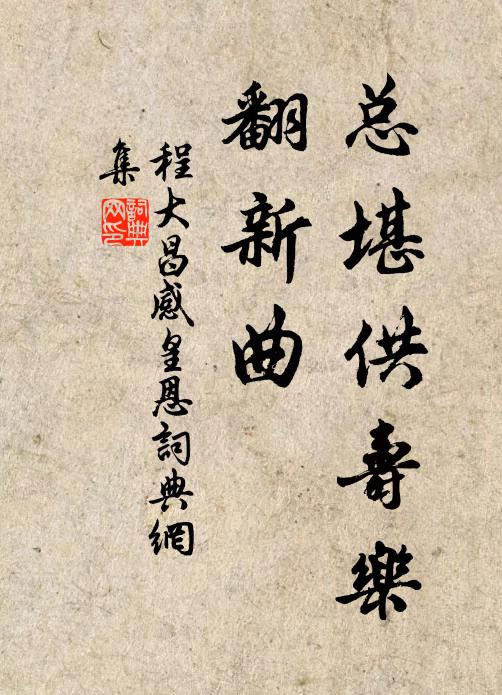 总堪供壽樂
翻新曲
程大昌感皇恩詞典網
集
詞典网印